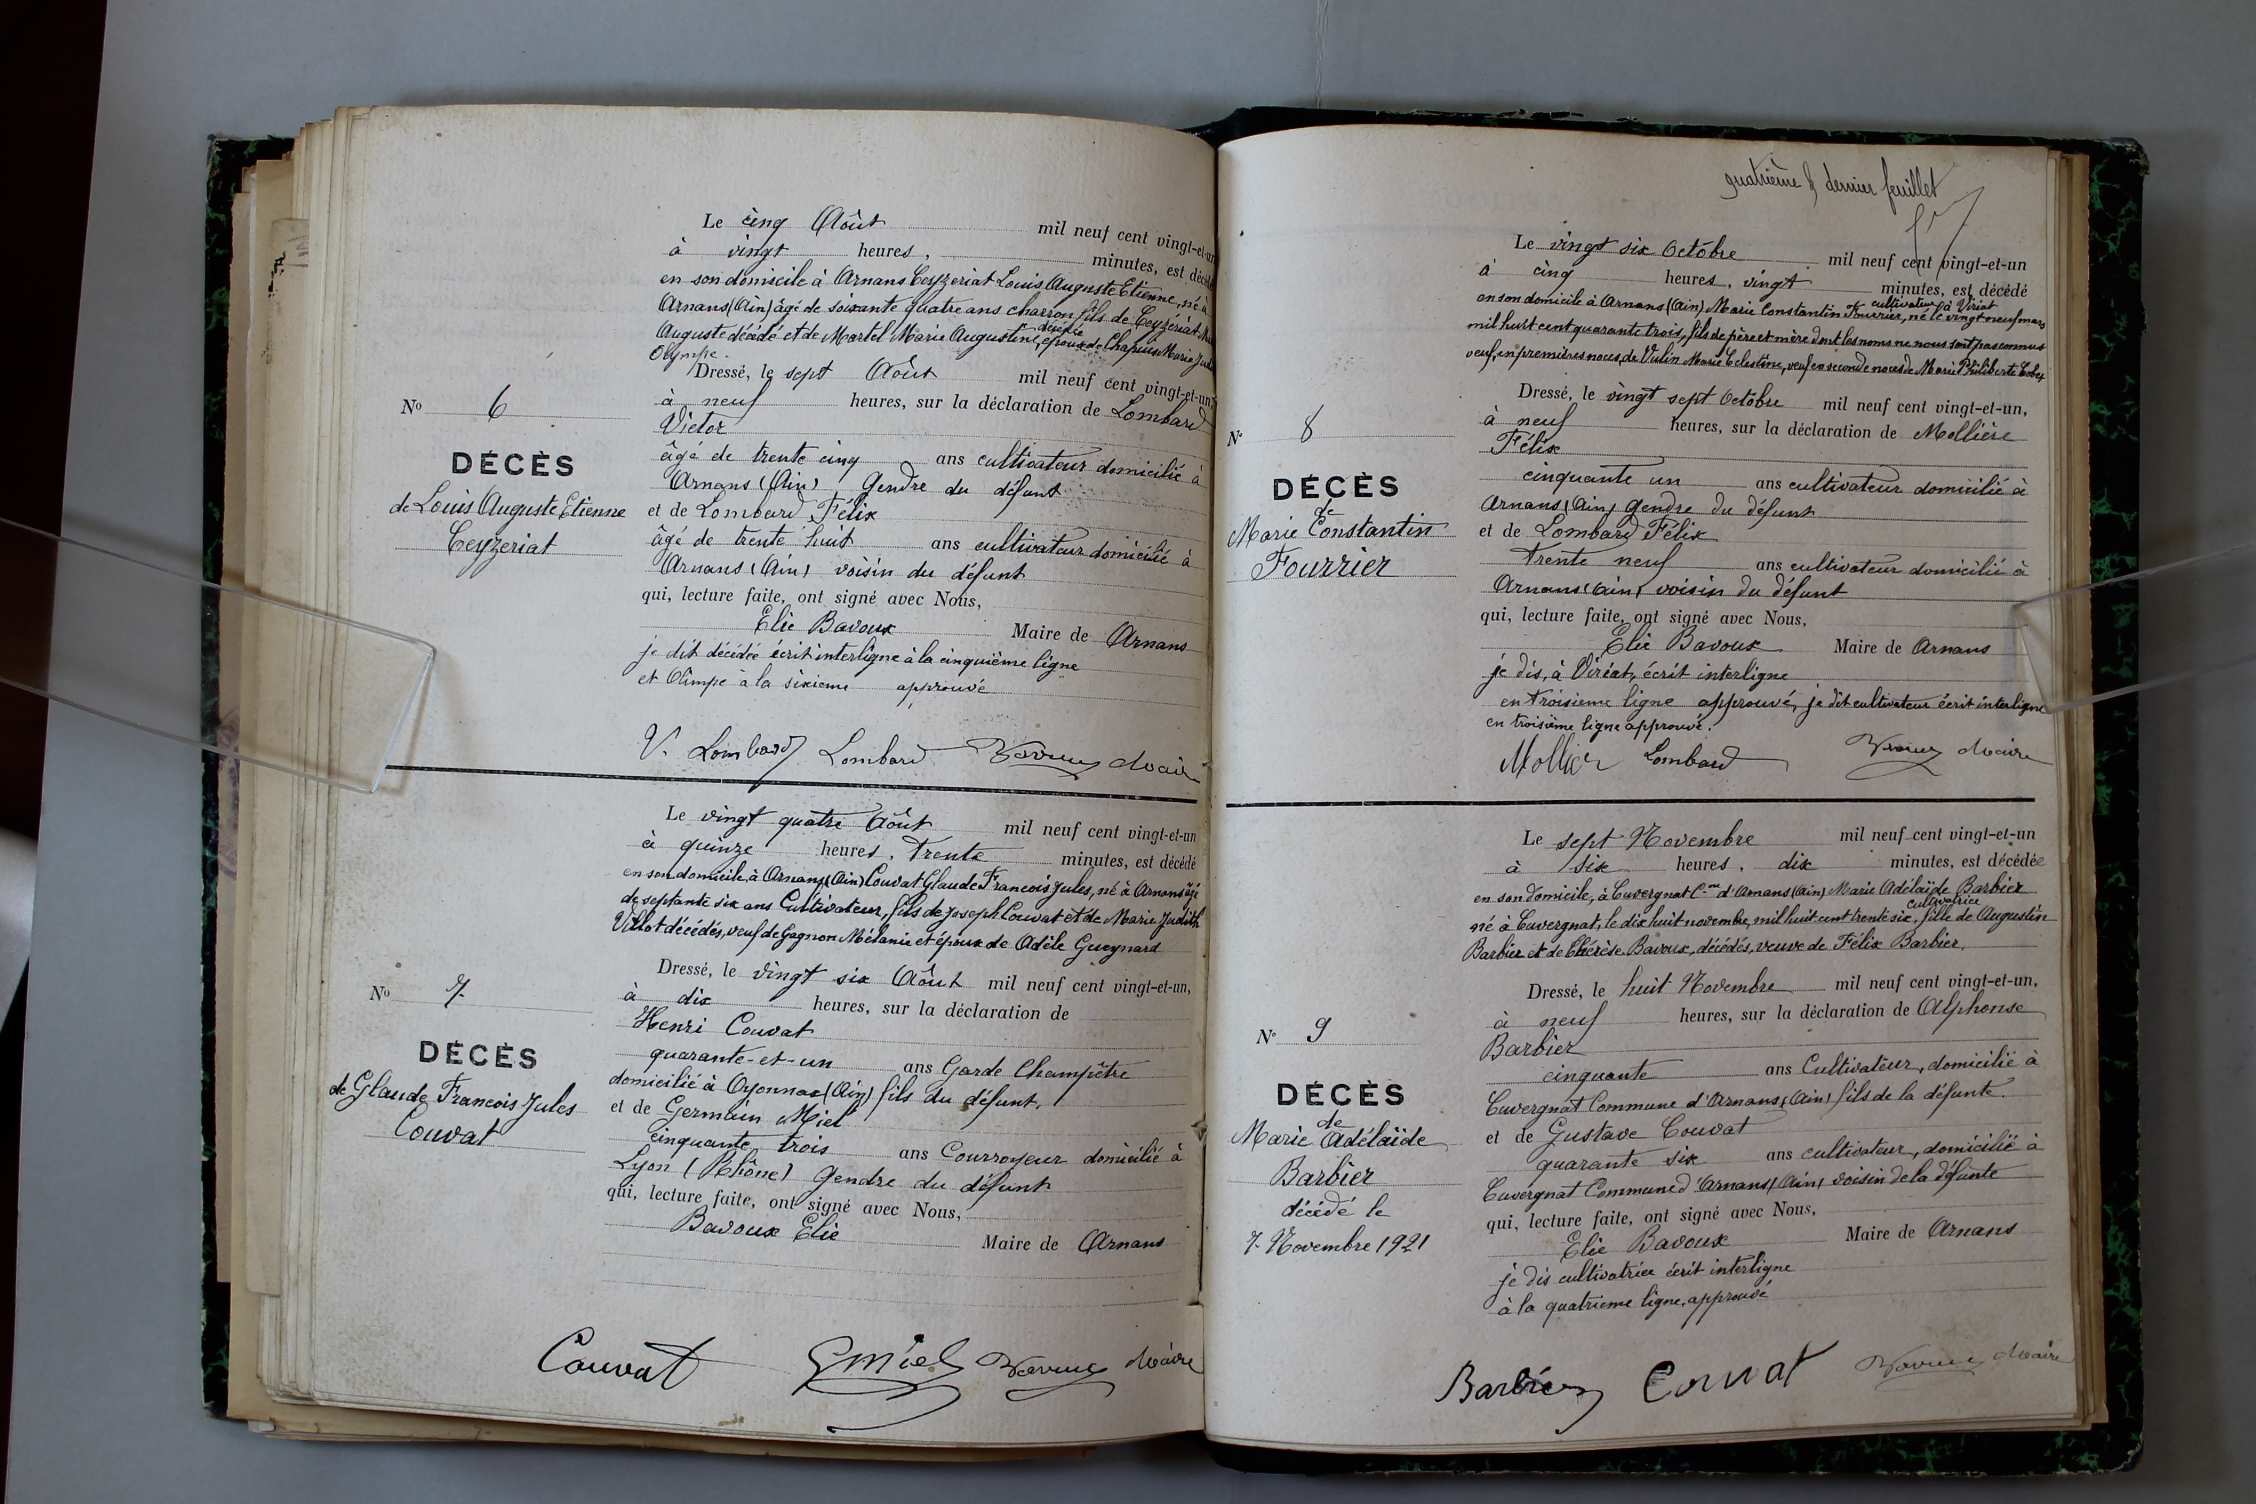 Le cinq Août mil neuf cent vingt-et-un
à vingt heures, minutes, est décédé
en son domicile à Arnans Ceyzeriat Louis Auguste Etienne, né à
Arnans (Ain) âgé de soixante quatre ans charron fils de Ceyzériat
Auguste décédé et de Martel Marie Augustine, décédée époux de Chapuis Marie
Olympe.
Dressé, le sept Août mil neuf cent vingt-et-un,
à neuf heures, sur la déclaration de Lombard
Victor
âgé de trente cinq ans cultivateur domicilié à
Arnans (Ain) Gendre du défunt
et de Lombard Félix
âgé de trente huit ans cultivateur domicilié à
Arnans (Ain) voisin du défunt
qui, lecture faite, ont signé avec Nous,
Elie Bavoux Maire de Arnans
je dit décédée écrit interligne à la cinquième ligne
et Olimpe a la sixieme approuvé
V. Lombard Lombard Bavoux Maire
No 6
DÉCÈS
de Louis Auguste Etienne
Ceyzeriat
Le vingt quatre Août mil neuf cent vingt-et-un
à quinze heures, trente minutes, est décédé
en son domicile, à Arnans (Ain) Couvat Glaude Francois Jules, né à Arnans âgé
de septante six ans Cultivateur, fils de Joseph Couvat et de Marie Judith
Villot décédés, veuf de Gagnon Mélanie et époux de Adèle Gueynard
Dressé, le vingt six Août mil neuf cent vingt-et-un,
à dix heures, sur la déclaration de
Henri Couvat
quarante-et-un ans Garde Champêtre
domicilié à Oyonnac (Ain) fils du défunt,
et de Germain Miel
cinquante trois ans Courroyeur domicilié à
Lyon (Rhône) Gendre du défunt
qui, lecture faite, ont signé avec Nous,
Bavoux Elie Maire de Arnans
Couvat G Miel Bavoux Maire
No 7
DÉCÈS
de Glaude Francois Jules
Couvat
quatrième & dernier feuillet
Le vingt six Octobre mil neuf cent vingt-et-un
à cinq heures, vingt minutes, est décédé
en son domicile à Arnans (Ain) Marie Constantin Fourrier, cultivateur né à Viriat le vingt neuf mars
mil huit cent quarante trois, fils de père et mère dont les noms ne nous sont pas connus
veuf, en premières noces, de Vulin Marie Celestine, veuf en seconde noces de Marie Philiberte
Dressé, le vingt sept Octobre mil neuf cent vingt-et-un,
à neuf heures, sur la déclaration de Mollière
Félix
cinquante un ans cultivateur domicilié à
Arnans (Ain) gendre du défunt
et de Lombard Félix
trente neuf ans cultivateur domicilié à
Arnans (Ain) voisin du défunt
qui, lecture faite, ont signé avec Nous,
Elie Bavoux Maire de Arnans
je dis, à Viriat, écrit interligne
en troisieme ligne approuvé, je dit cultivateur écrit interligne
en troisième ligne approuvé.
Mollier Lombard Bavoux Maire
No 8
DÉCÈS
de
Marie Constantin
Fourrier
Le sept Novembre mil neuf cent vingt-et-un
à six heures, dix minutes, est décédée
en son domicile, à Cuvergnat Cne d'Arnans (Ain) Marie Adélaïde Barbier
né à Cuvergnat, le dix huit novembre, mil huit cent trente six, cultivatrice fille de Augustin
Barbier et de Thérèse Bavoux, décédés, veuve de Félix Barbier.
Dressé, le huit Novembre mil neuf cent vingt-et-un,
à neuf heures, sur la déclaration de Alphonse
Barbier
cinquante ans Cultivateur, domicilié à
Cuvergnat Commune d'Arnans (Ain) fils de la défunte.
et de Gustave Couvat
quarante six ans cultivateur, domicilié à
Cuvergnat Commune d'Arnans (Ain) voisin de la défunte
qui, lecture faite, ont signé avec Nous,
Elie Bavoux Maire de Arnans
je dis cultivatrice écrit interligne
à la quatrieme ligne, approuvé
Barbier Couvat Bavoux Maire
No 9
DÉCÈS
de
Marie Adélaïde
Barbier
décédé le
7 Novembre 1921